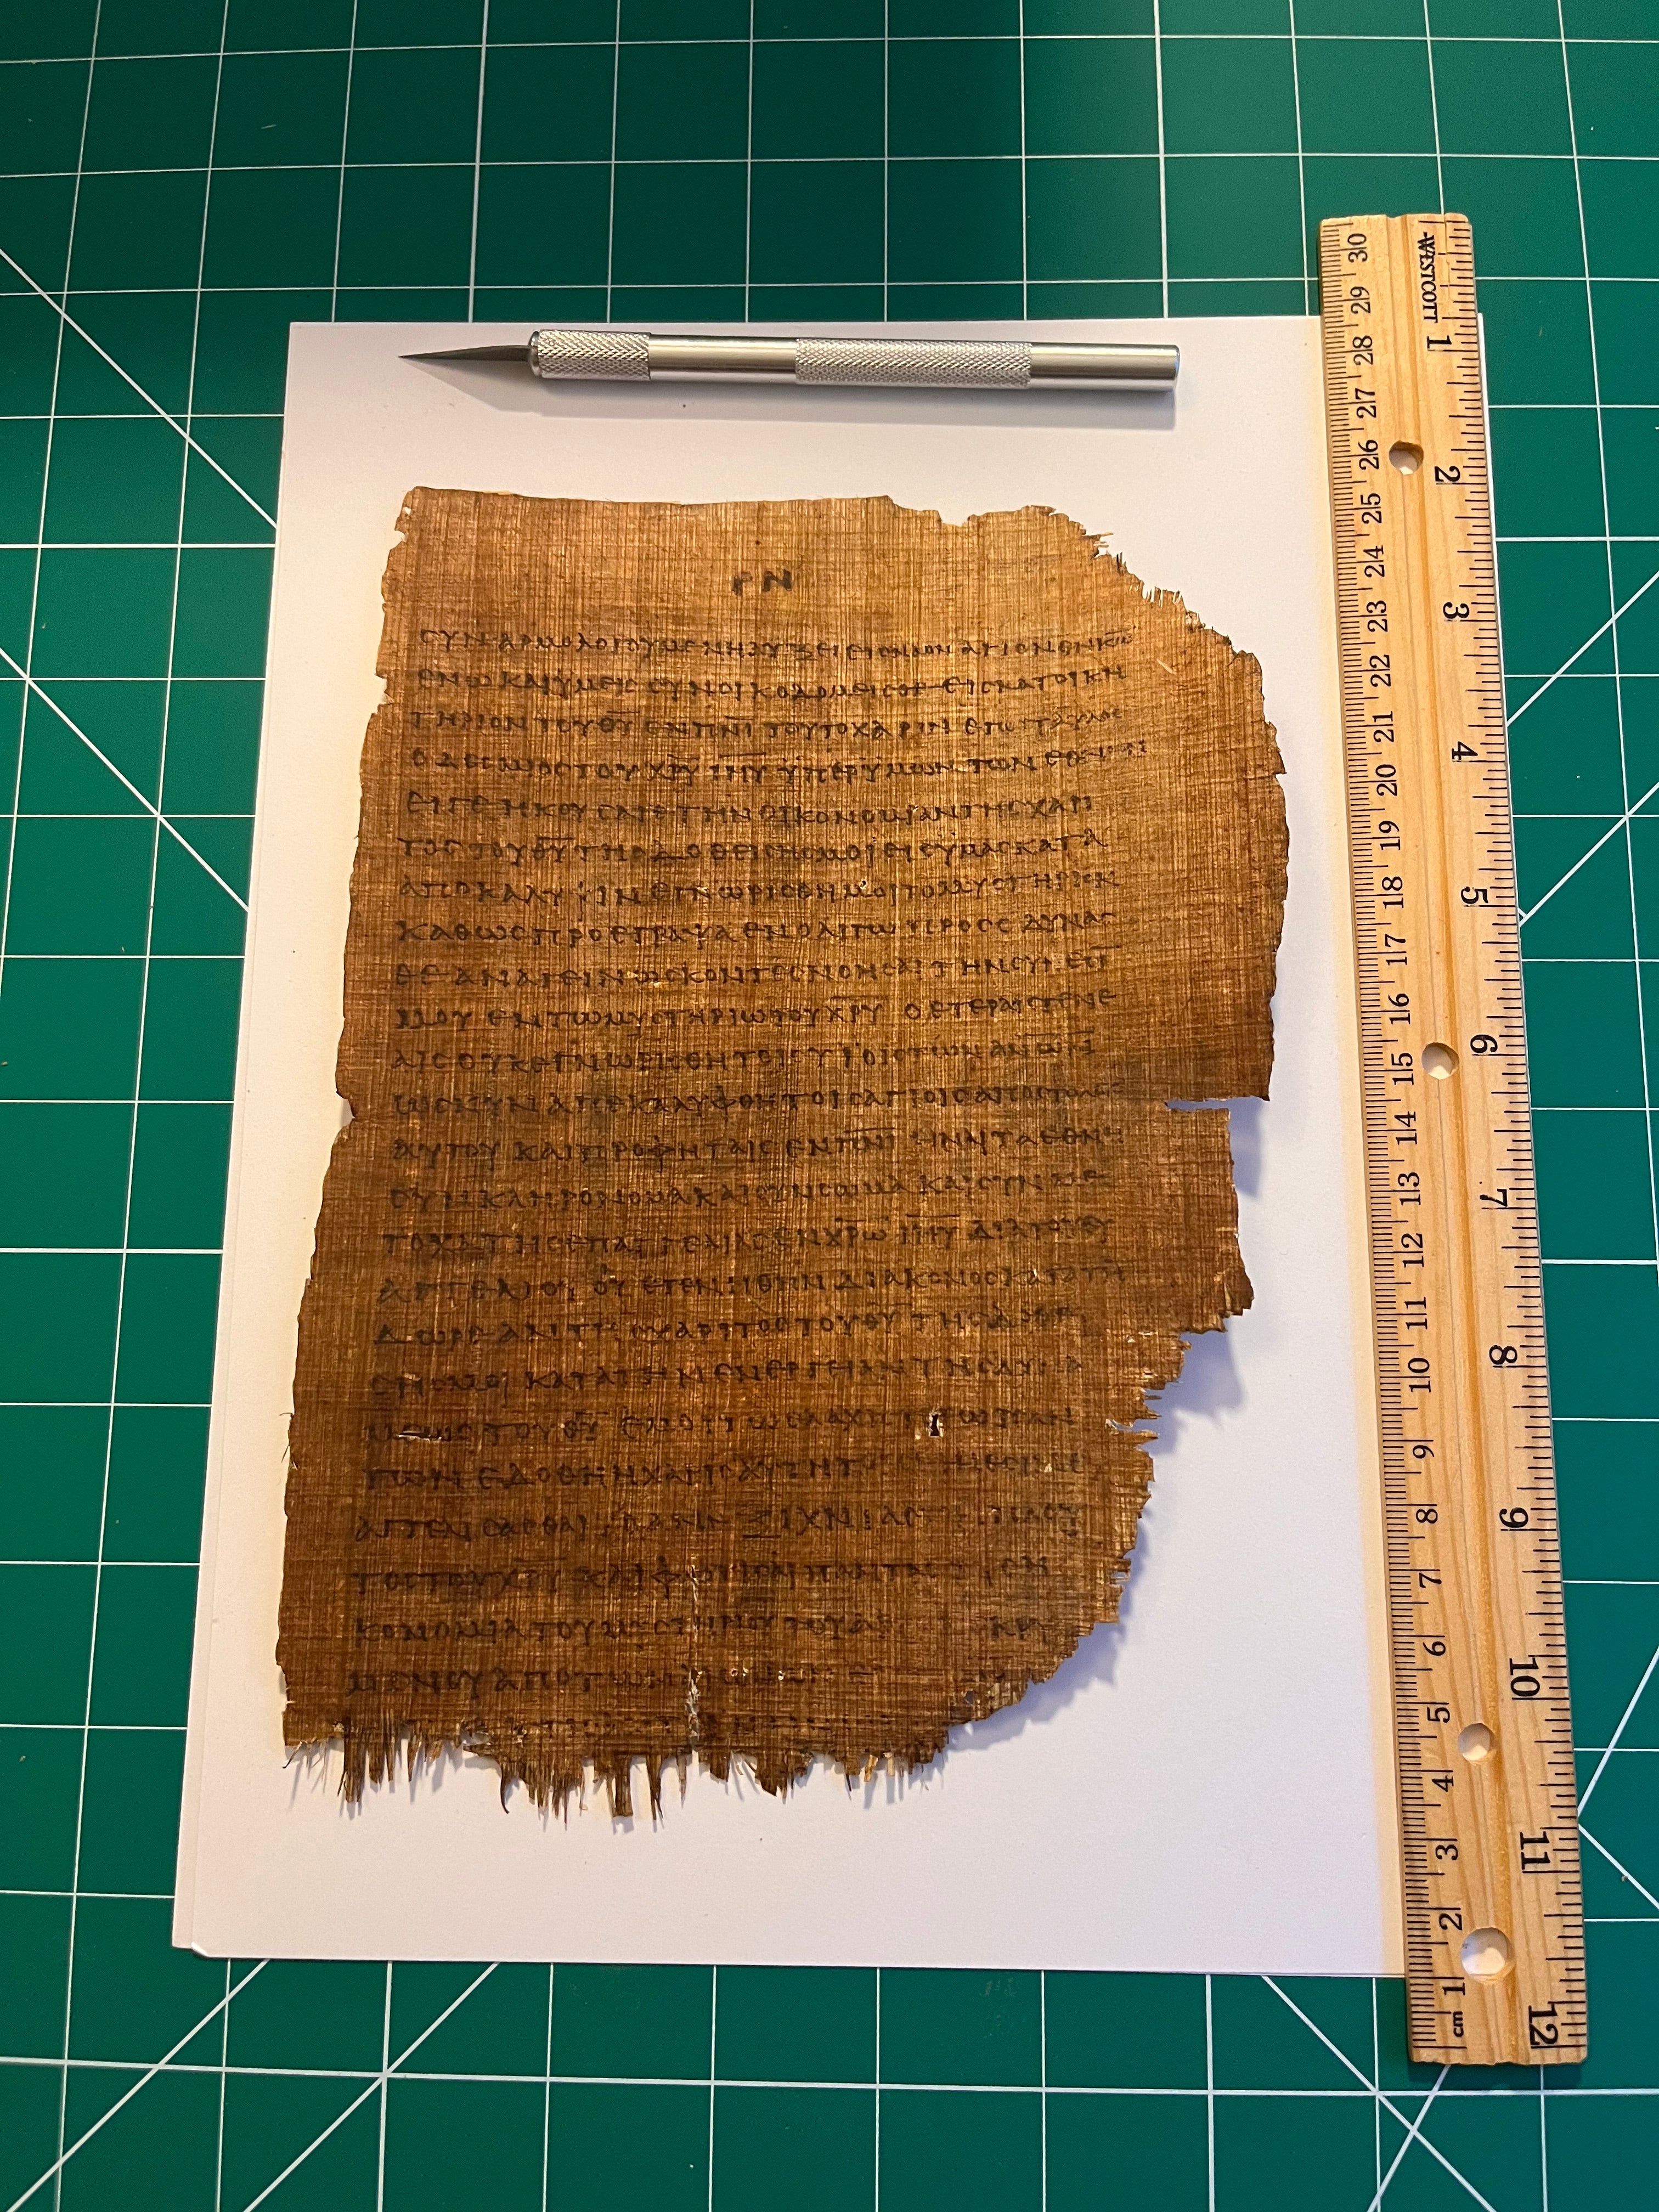 ΡΝ
ϹΥΝΑΡΜΟΛΟΓΟΥΜΕΝΗ ΑΥΞΕΙ ΕΙϹ ΝΑΟΝ ΑΓΙΟΝ ΕΝ Κ̅Ω̅
ΕΝ Ω ΚΑΙ ΥΜΕΙϹ ϹΥΝΟΙΚΟΔΟΜΕΙϹΘΕ ΕΙϹ ΚΑΤΟΙΚΗ
ΤΗΡΙΟΝ ΤΟΥ Θ̅Υ̅ ΕΝ Π̅Ν̅Ι̅ ΤΟΥΤΟΥ ΧΑΡΙΝ ΕΓΩ ΠΑΥΛΟϹ
Ο ΔΕϹΜΙΟϹ ΤΟΥ Χ̅Ρ̅Υ̅ Ι̅Η̅Υ̅ ΥΠΕΡ ΥΜΩΝ ΤΩΝ ΕΘΝΩΝ
ΕΙΓΕ ΗΚΟΥϹΑΤΕ ΤΗΝ ΟΙΚΟΝΟΜΙΑΝ ΤΗϹ ΧΑΡΙ
ΤΟϹ ΤΟΥ Θ̅Υ̅ ΤΗϹ ΔΟΘΕΙϹΗϹ ΜΟΙ ΕΙϹ ΥΜΑϹ ΚΑΤΑ
ΑΠΟΚΑΛΥΨΙΝ ΕΓΝΩΡΙϹΘΗ ΜΟΙ ΤΟ ΜΥϹΤΗΡΙΟΝ
ΚΑΘΩϹ ΠΡΟΕΓΡΑΨΑ ΕΝ ΟΛΙΓΩ ΠΡΟϹ Ο ΔΥΝΑϹ
ΘΕ ΑΝΑΓΕΙΝΩϹΚΟΝΤΕϹ ΝΟΗϹΑΙ ΤΗΝ ϹΥΝΕϹΙ
ΜΟΥ ΕΝ ΤΩ ΜΥϹΤΗΡΙΩ ΤΟΥ Χ̅Ρ̅Υ̅ Ο ΕΤΕΡΑΙϹ ΓΕΝΕ
ΑΙϹ ΟΥΚ ΕΓΝΩΡΙϹΘΗ ΤΟΙϹ ΥΙΟΙϹ ΤΩΝ ΑΝΩΝ
ΩϹ ΝΥΝ ΑΠΕΚΑΛΥΦΘΗ ΤΟΙϹ ΑΓΙΟΙϹ ΑΠΟϹΤΟΛΟΙϹ
ΑΥΤΟΥ ΚΑΙ ΠΡΟΦΗΤΑΙϹ ΕΝ Π̅Ν̅Ι̅ ΕΙΝΑΙ ΤΑ ΕΘΝΗ
ϹΥΝΚΛΗΡΟΝΟΜΑ ΚΑΙ ϹΥΝϹΩΜΑ ΚΑΙ ϹΥΝΜΕ
ΤΟΧΑ ΤΗϹ ΕΠΑΓΓΕΛΙΑϹ ΕΝ Χ̅Ρ̅Ω̅ Ι̅Η̅Υ̅ ΔΙΑ ΤΟΥ ΕΥ
ΑΓΓΕΛΙΟΥ ΟΥ ΕΓΕΝΗΘΗΝ ΔΙΑΚΟΝΟϹ ΚΑΤΑ ΤΗΝ
ΔΩΡΕΑΝ ΤΗϹ ΧΑΡΙΤΟϹ ΤΟΥ Θ̅Υ̅ ΤΗϹ ΔΟΘΕΙ
ϹΗϹ ΜΟΙ ΚΑΤΑ ΤΗΝ ΕΝΕΡΓΕΙΑΝ ΤΗϹ ΔΥΝΑ
ΜΕΩϹ ΤΟΥ Θ̅Υ̅ ΕΜΟΙ ΤΩ ΕΛΑΧΙϹΤΟΤΕΡΩ ΠΑΝ
ΤΩΝ ΕΔΟΘΗ Η ΧΑΡΙϹ ΑΥΤΗ ΤΟΙϹ ΕΘΝΕϹΙΝ ΕΥ
ΑΓΓΕΛΙϹΑϹΘΑΙ ΤΟ ΑΝΕΞΙΧΝΙΑϹ ΠΛΟΥ
ΤΟϹ ΤΟΥ Χ̅Ρ̅Υ̅ ΚΑΙ ΦΩΤΙϹΑΙ ΠΑΝΤΑϹ
ΚΟΝΟΜΙΑ ΤΟΥ ΜΥϹΤΗΡΙΟΥ ΤΟΥ ΑΠ ΚΡΥ
ΜΕΝΟΥ ΑΠΟ ΤΩΝ ΑΙΩΝΩΝ
WESTCOTT
1 2 3 4 5 6 7 8 9 10 11 12
30 29 28 27 26 25 24 23 22 21 20 19 18 17 16 15 14 13 12 11 10 9 8 7 6 5 4 3 2 1 cm